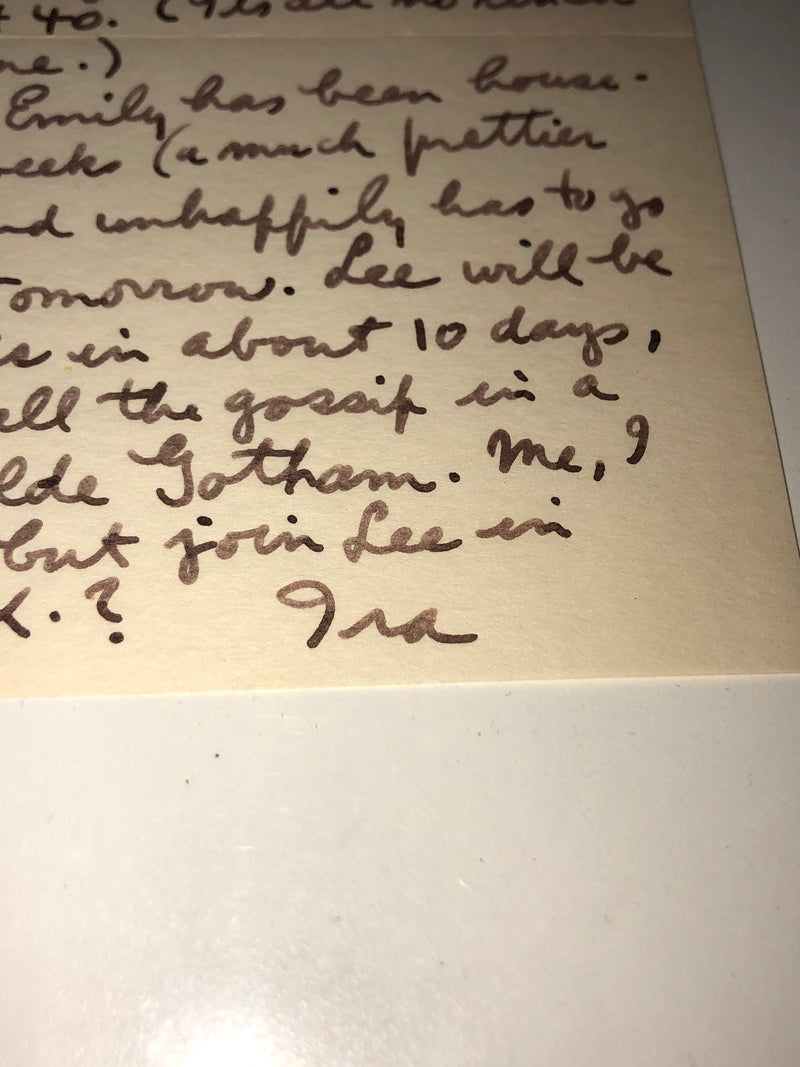 40. (It's all
me.)
Emily has been house-
weeks (a much prettier
nd unhappily has to go
tomorrow. Lee will be
is in about 10 days,
all the gossip in a
lde Gotham. Me, I
but join Lee in
. ? Ira